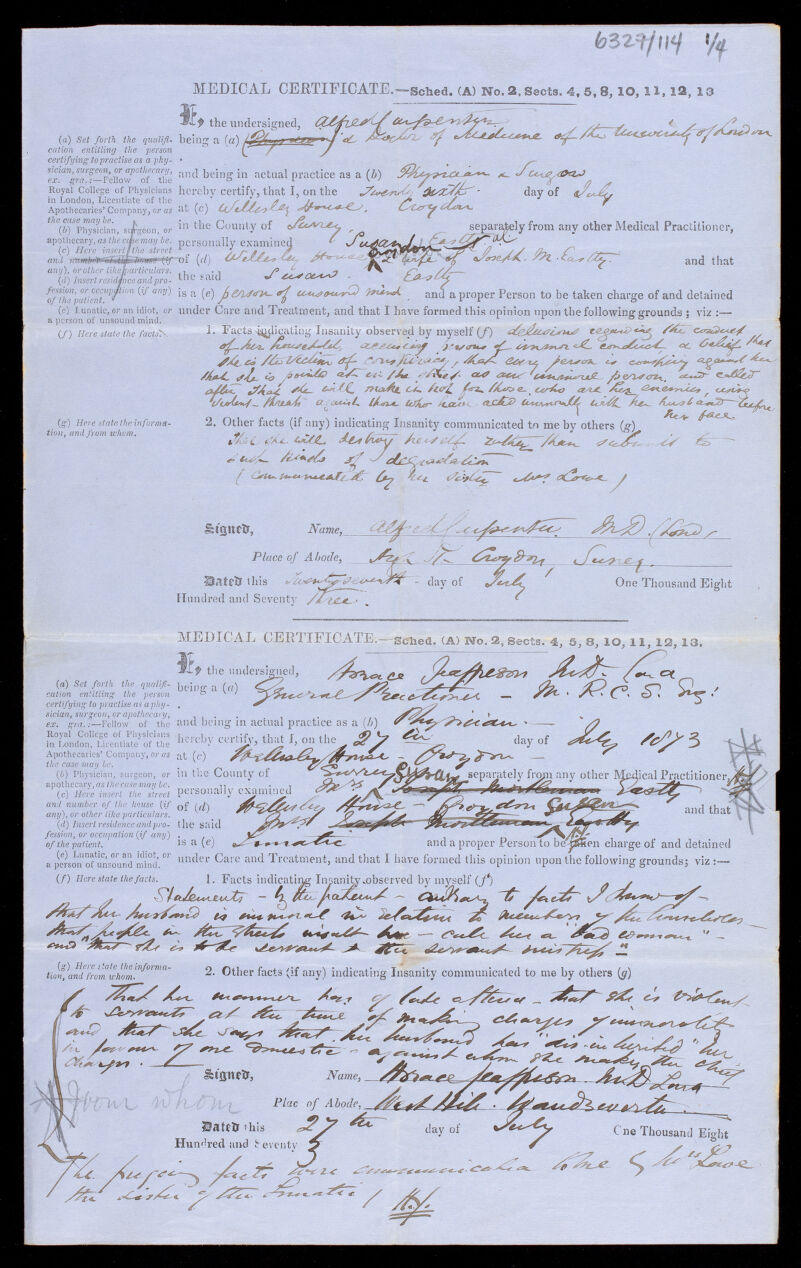 6329/114 1/4
MEDICAL CERTIFICATE.—Sched. (A) No. 2, Sects. 4, 5, 8, 10, 11, 12, 13
I, the undersigned, Alfred Carpenter
being a (a) (Physician) a Doctor of Medicine of the University of London
and being in actual practice as a (b) Physician & Surgeon
hereby certify, that I, on the Twenty sixth day of July
at (c) Wellesley House. Croydon
in the County of Surrey. separately from any other Medical Practitioner,
personally examined Susan Eastty at
of (d) Wellesley House Croydon wife of Joseph. M. Eastty. and that
the said Susan Eastty
is a (e) person of unsound mind. and a proper Person to be taken charge of and detained
under Care and Treatment, and that I have formed this opinion upon the following grounds; viz:—
(a) Set forth the qualifi-
cation entitling the person
certifying to practise as a phy-
sician, surgeon, or apothecary,
ex. gra.:—Fellow of the
Royal College of Physicians
in London, Licentiate of the
Apothecaries' Company, or as
the case may be.
(b) Physician, surgeon, or
apothecary, as the case may be.
(c) Here insert the street
and number of the house (if
any), or other like particulars.
(d) Insert residence and pro-
fession, or occupation (if any)
of the patient.
(e) Lunatic, or an idiot, or
a person of unsound mind.
(f) Here state the facts.
1. Facts indicating Insanity observed by myself (f) delusions regarding the conduct
of her household, accusing persons of immoral conduct a belief that
she is the victim of conspiracy, that every person is conspiring against her
that she is pointed at in the street as an immoral person, and called
after that she will make it hot for those who are her enemies, using
violent threats against those who have acted immorally with her husband before
her face
(g) Here state the informa-
tion, and from whom.
2. Other facts (if any) indicating Insanity communicated to me by others (g)
That she will destroy herself rather than submit to
such kinds of degradation
(communicated by her sister Mrs Lowe)
Signed, Name, Alfred Carpenter. M.D. (Lond)
Place of Abode, High St Croydon, Surrey.
Dated this Twenty seventh day of July One Thousand Eight
Hundred and Seventy three.
MEDICAL CERTIFICATE.—Sched. (A) No. 2, Sects. 4, 5, 8, 10, 11, 12, 13.
I, the undersigned, Horace Jeaffreson M.D. Lond
being a (a) General Practitioner — M. R. C. S. Eng:
and being in actual practice as a (b) Physician.—
hereby certify, that I, on the 27th day of July 1873
at (c) Wellesley House — Croydon —
in the County of Surrey separately from any other Medical Practitioner,
personally examined Mrs Susan Joseph Montleman Eastty
of (d) Wellesley House — Croydon and that
the said Mrs Joseph Montleman Susan Eastty
is a (e) Lunatic and a proper Person to be taken charge of and detained
under Care and Treatment, and that I have formed this opinion upon the following grounds; viz:—
(a) Set forth the qualifi-
cation entitling the person
certifying to practise as a phy-
sician, surgeon, or apothecary,
ex. gra.:—Fellow of the
Royal College of Physicians
in London, Licentiate of the
Apothecaries' Company, or as
the case may be.
(b) Physician, surgeon, or
apothecary, as the case may be.
(c) Here insert the street
and number of the house (if
any), or other like particulars.
(d) Insert residence and pro-
fession, or occupation (if any)
of the patient.
(e) Lunatic, or an idiot, or
a person of unsound mind.
(f) Here state the facts.
1. Facts indicating Insanity observed by myself (f)
Statements — by the patient — contrary to facts I know of —
that her husband is immoral in relation to members of the household —
that people in the streets insult her — call her a "bad woman" —
and "that she is to be servant & the servant mistress"
(g) Here state the informa-
tion, and from whom.
2. Other facts (if any) indicating Insanity communicated to me by others (g)
That her manner has of late altered — that she is violent
to servants at the time of making charges of immorality
and that she says that her husband has "disinherited" her
in favour of one domestic — against whom she makes the chief
charges. —
Signed, Name, Horace Jeaffreson M.D. Lond
from whom
Place of Abode, West Hill. Wandsworth
Dated this 27th day of July One Thousand Eight
Hundred and Seventy 3
The foregoing facts were communicated to me by Mrs Lowe
the sister of the Lunatic / H.J.